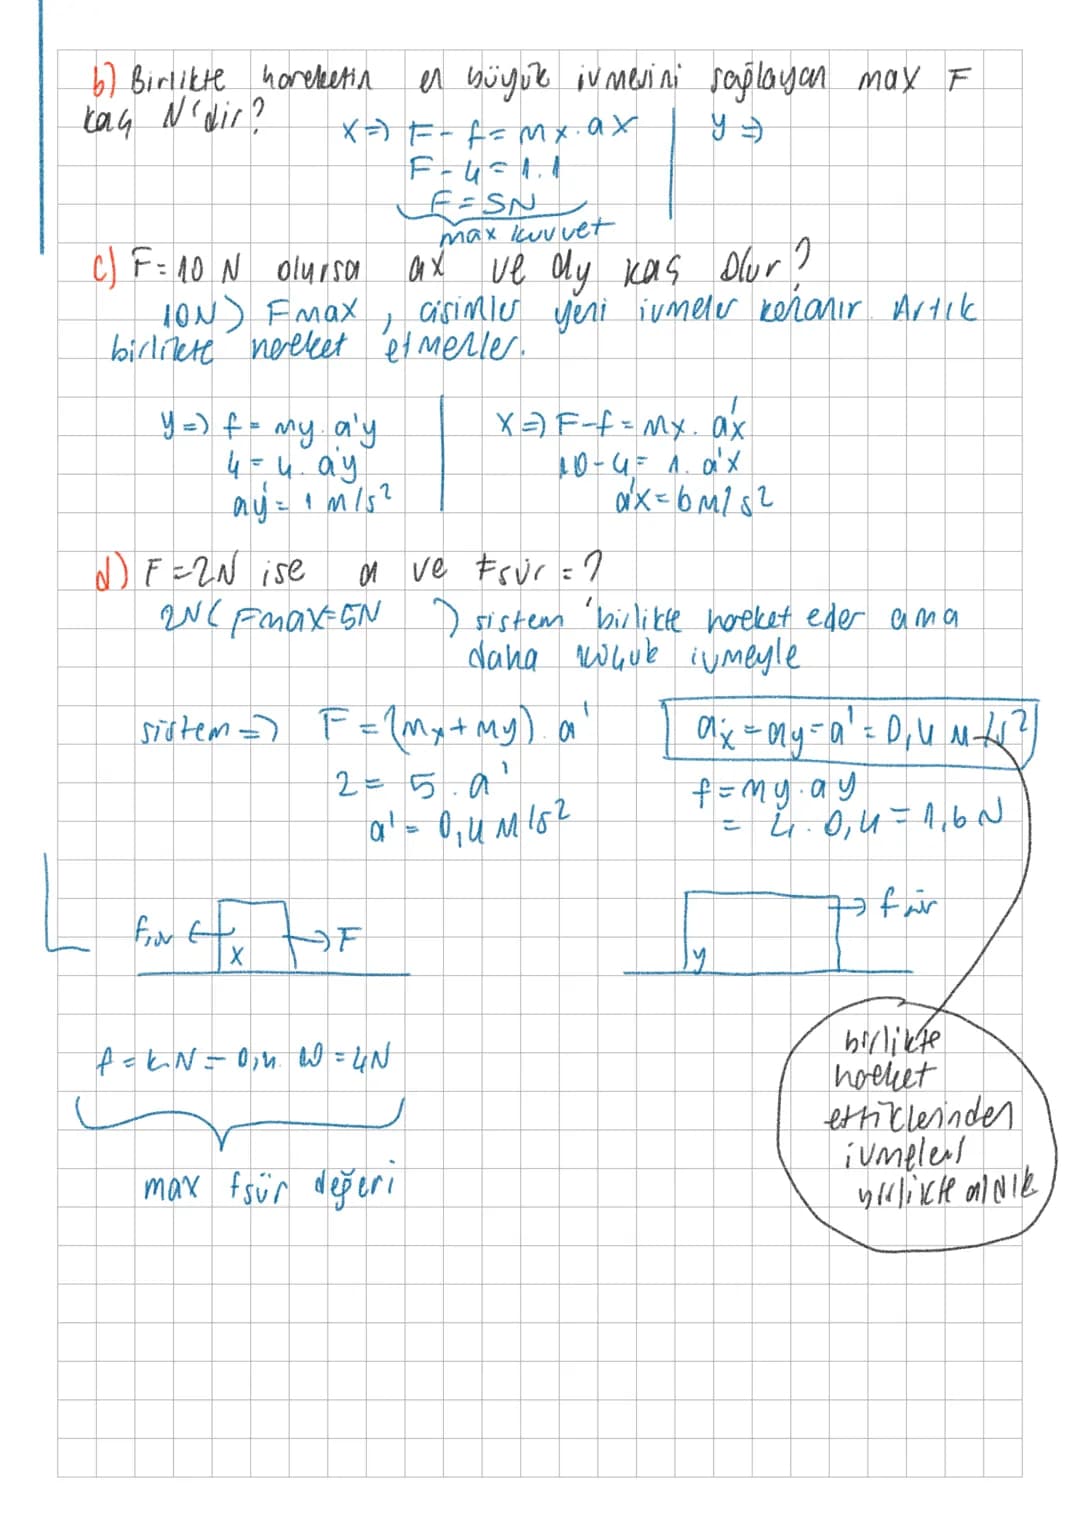 b) Birlikte hareketin en büyük ivmesini sağlayan max F
kaç N'dir?
x => F - f = mx.ax
y =>
F - 4 = 1.1
F = 5N
max kuvvet
c) F = 10 N olursa ax ve ay kaç olur?
10N > Fmax, cisimler yeni ivmeler kazanır. Artık
birlikte hareket etmezler.
y => f = my.a'y
4 = 4.a'y
a'y = 1 m/s²
x => F-f = mx.a'x
10-4 = 1.a'x
a'x = 6 m/s²
d) F = 2N ise a ve Fsür = ?
2N < Fmax = 5N
) sistem birlikte hareket eder ama
daha küçük ivmeyle
sistem => F = (mx + my).a'
2 = 5.a'
a' = 0,4 m/s²
ax = ay = a' = 0,4 m/s²
f = my.ay
= 4.0,4 = 1,6 N
fsür
x
F
y
fsür
f = k.N = 0,4.10 = 4N
max fsür değeri
birlikte
hareket
ettiklerinden
ivmeleri
birlikte aldık